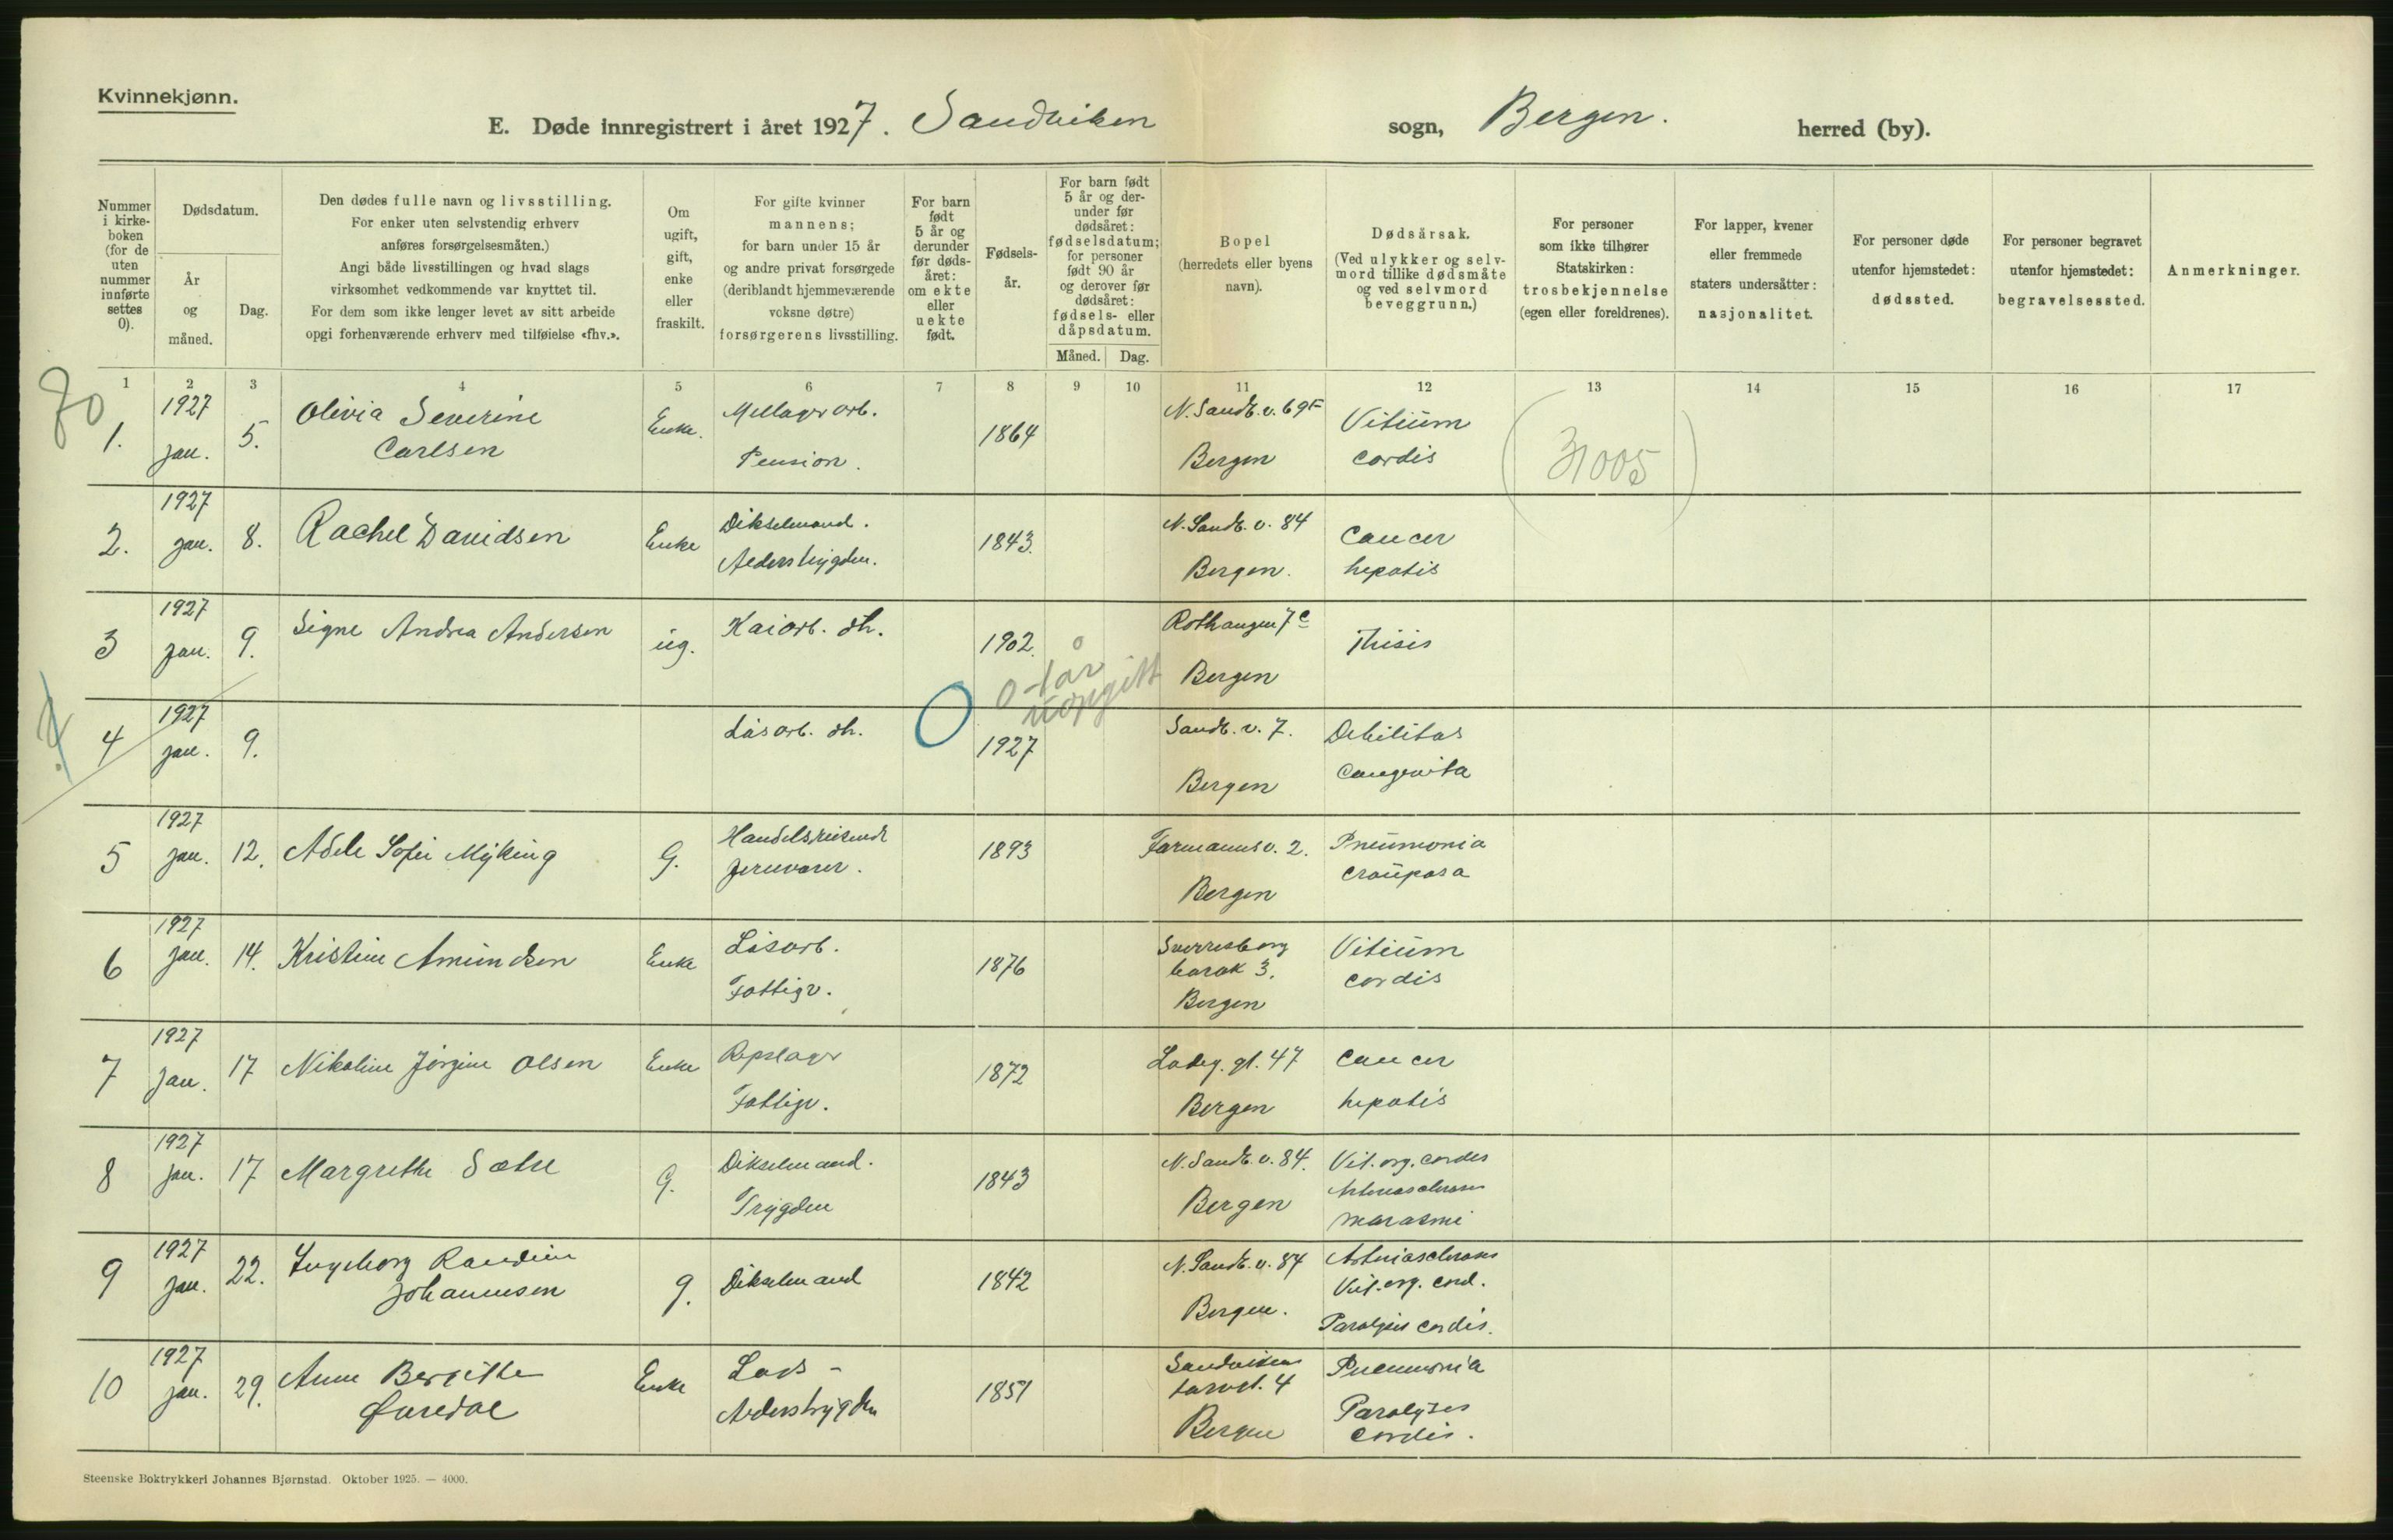 Kvinnekjønn.
E. Døde innregistrert i året 1927. Sandviken sogn, Bergen. herred (by).
Nummer i kirke-boken (for de uten nummer innførte settes 0).
Dødsdatum.
År og måned.
Dag.
Den dødes fulle navn og livsstilling.
For enker uten selvstendig erhverv
anføres forsørgelsesmåten.)
Angi både livsstillingen og hvad slags
virksomhet vedkommende var knyttet til.
For dem som ikke lenger levet av sitt arbeide
opgi forhenværende erhverv med tilføielse «fhv.».
Om ugift, gift, enke eller fraskilt.
For gifte kvinner
mannens;
for barn under 15 år
og andre privat forsørgede
(deriblandt hjemmeværende
voksne døtre)
forsørgerens livsstilling.
For barn født 5 år og derunder før døds-året: om ekte eller uekte født.
Fødsels-år.
For barn født 5 år og der-under før dødsåret: fødselsdatum; for personer født 90 år og derover før dødsåret: fødsels- eller dåpsdatum.
Måned. Dag.
Bopel
(herredets eller byens
navn).
Dødsårsak.
(Ved ulykker og selv-
mord tillike dødsmåte
og ved selvmord
beveggrunn.)
For personer
som ikke tilhører
Statskirken:
trosbekjennelse
(egen eller foreldrenes).
For lapper, kvener
eller fremmede
staters undersåtter:
nasjonalitet.
For personer døde
utenfor hjemstedet:
dødssted.
For personer begravet
utenfor hjemstedet:
begravelsessted.
Anmerkninger.
1 2 3 4 5 6 7 8 9 10 11 12 13 14 15 16 17
1. 1927 jan. 5. Olivia Severine Carlsen Enke. Pension. 1864 N. Sandv. v. 69F Bergen Vitium cordis (31005)
2. 1927 jan. 8. Rachel Davidsen Enke Dikselmand. Alderstrygden. 1843. N. Sandv. v. 84 Bergen. Cancer hepatis
3 1927 jan. 9. Signe Andrea Andersen ug. Kaiarb. dh. 1902. Rothaugen 7c Bergen Thisis
0-1 år uopgitt
4 1927 jan. 9. Løsarb. dh. 0 1927 Sandv. v. 7. Bergen Debilitas Congenita
5 1927 jan. 12. Adele Sofie Myking G. Handelsreisende Jernvarer. 1893 Farmannsv. 2. Bergen Pneumonia crouposa
6 1927 jan. 14. Kristine Amundsen Enke Løsarb. Fattigv. 1876 Sverresborg barak 3. Bergen Vitium cordis
7 1927 jan. 17 Nikoline Jörgine Olsen Enke Repslager Fattigv. 1872 Ladeg. gt. 47 Bergen Cancer hepatis
8 1927 jan. 17 Margrethe Sætre G. Dikselmand. Trygden 1843 N. Sandv. v. 84. Bergen Vit. org. cordis Arterioscleroses marasmi
9 1927 jan. 22. Ingeborg Randine Johannesen g. Dikselmand 1842 N. Sandv. v. 84 Bergen. Arterioscleroses Vit. org. cord. Paralysis cordis.
10 1927 jan. 29. Anne Bergitte Enke Lods - Alderstrygden 1851 Sandviken torvet. 4 Bergen Pneumonia Paralyses cordis.
Steenske Boktrykkeri Johannes Bjørnstad. Oktober 1925. — 4000.